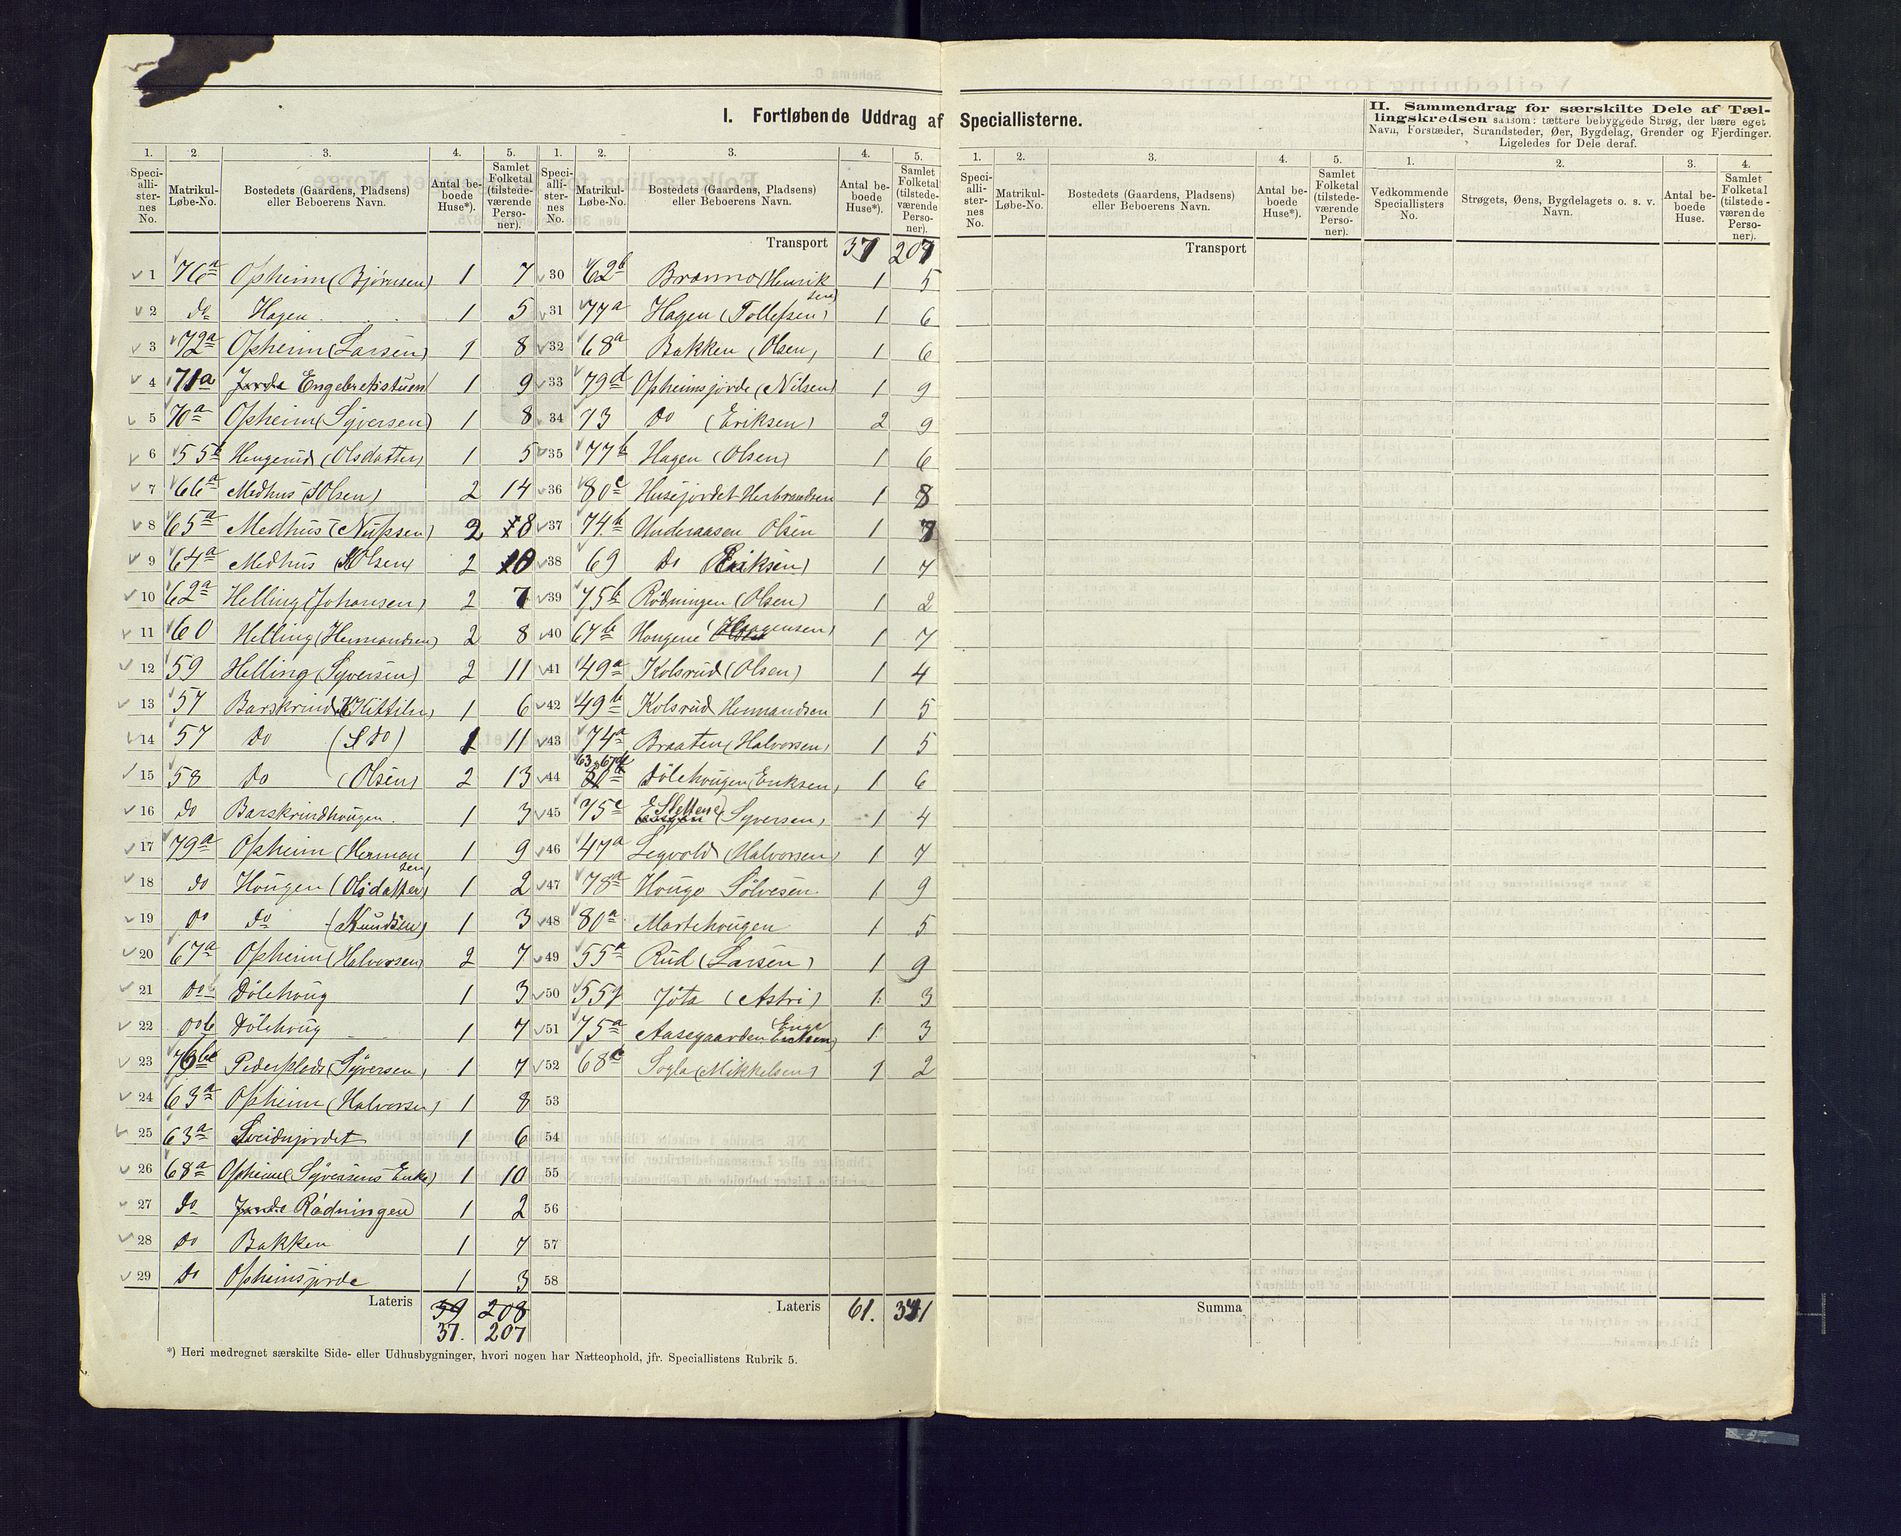 I. Fortløbende Uddrag af Speciallisterne.
II. Sammendrag for særskilte Dele af Tæl-
lingskredsen saasom: tættere bebyggede Strøg, der bære eget
Navn, Forstæder, Strandsteder, Øer, Bygdelag, Grender og Fjerdinger.
Ligeledes for Dele deraf.
1. 2. 3. 4. 5. 1. 2. 3. 4. 5.
Speci-alli-ster-nes No. Matrikul-Løbe-No. Bostedets (Gaardens, Pladsens) eller Beboerens Navn. Antal be-boede Huse*). Samlet Folketal (tilstede-værende Perso-ner). Speci-alli-ster-nes No. Matrikul-Løbe-No. Bostedets (Gaardens, Pladsens) eller Beboerens Navn. Antal be-boede Huse*). Samlet Folketal (tilstede-værende Perso-ner).
Transport 37 207
1 76a Opheim (Bjørnsen) 1 7
2 do Hagen 1 5
3 72a Opheim (Larsen) 1 8
4 71a Jorde Engebretsstuen 1 9
5 70a Opheim (Syversen) 1 8
6 55b Hengerud (Olsdatter) 1 5
7 66a Medhus (Olsen) 2 14
8 65a Medhus 2 8
9 64a Medhus (Olsen) 2 10
10 62a Helling (Johansen) 2 7
11 60 Helling (Hermandsen) 2 8
12 59 Helling (Syversen) 2 11
13 57 Barskrind (Kittilsen) 1 6
14 57 Do (S Do) 1 11
15 58 Do (Olsen) 2 13
16 Do Barskrindhougen 1 3
17 79a Opheim (Herman
sen) 1 9
18 do Hougen (Olsdatter) 1 2
19 Do Do (Knudsen) 1 3
20 67a Opheim (Halvorsen) 2 7
21 Do Dölehoug 1 3
22 Do b Dölehoug 1 7
23 Pedersplads (Syversen) 1 7
24 63a Opheim (Halvorsen) 1 8
25 63a Sveidnjordet 1 6
26 68a Opheim (Syversens Enke) 1 10
27 Do Jorde Rødningen 1 2
28 Do Bakken 1 7
29 Do Opheimsjorde 1 3
Lateris 39 208
37. 207
30 62b Bramo (Henrik
sen) 1 5
31 77a Hagen (Tollefsen) 1 6
32 68a Bakken (Olsen) 1 6
33 79d Opheimsjorde (Nilsen) 1 9
34 73 Do (Eriksen) 2 9
35 77b Hagen (Olsen) 1 6
36 80c Husejordet Herbrandsen 1 8
37 74b Underaasen Olsen 1 7
38 69 Do (Eriksen) 1 7
39 75b Rødningen (Olsen) 1 2
40 67b Hougene Haagensen) 1 7
41 49a Kolsrud (Olsen) 1 4
42 49b Kolsrud Hermandsen 1 5
43 74a Braaten (Halvorsen) 1 5
44 Dölehougen (Eriksen) 1 6
45 75c Slettene (Syversen) 1 4
46 47a Legvold (Halvorsen) 1 7
47 78a Houge Sölvesen 1 9
48 80a Martehougen 1 5
49 55a Rud (Larsen) 1 9
50 Jöta (Astri) 1 3
51 75a Aasegaarden Enge 1 3
52 68c Sogla (Mikkelsen) 1 2
53
54
55
56
57
58
Lateris 61. 341
*) Heri medregnet særskilte Side- eller Udhusbygninger, hvori nogen har Natteophold, jfr. Speciallistens Rubrik 5.
1. 2. 3. 4. 5. 1. 2. 3. 4.
Speci-alli-ster-nes No. Matrikul-Løbe-No. Bostedets (Gaardens, Pladsens) eller Beboerens Navn. Antal be-boede Huse*). Samlet Folketal (tilstede-værende Perso-ner). Vedkommende Speciallisters No. Strøgets, Øens, Bygdelagets o. s. v. Navn. Antal be-boede Huse. Samlet Folketal (tilstede-værende Perso-ner).
Transport
Summa